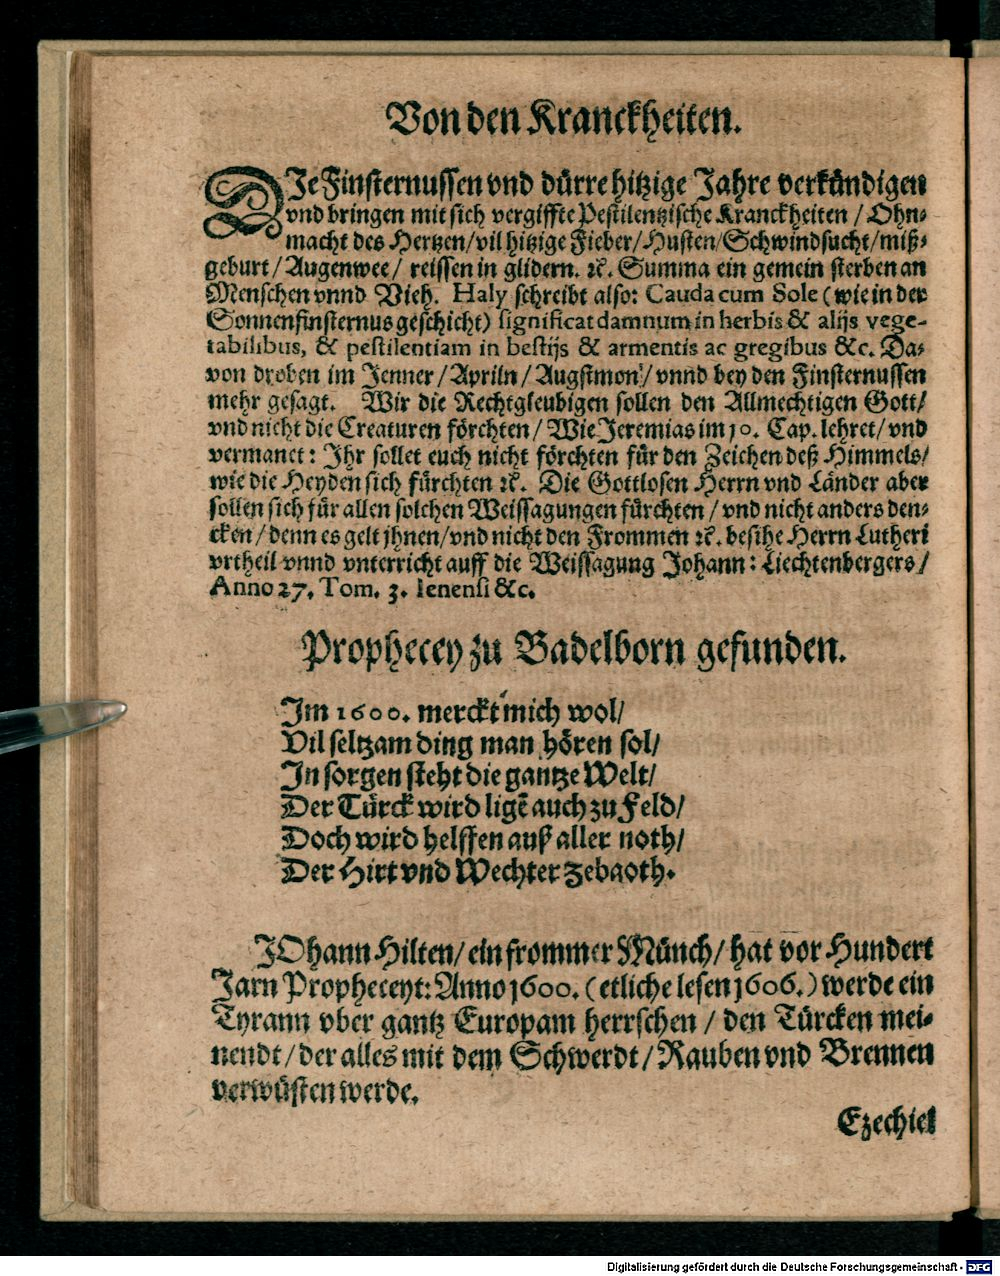 Von den Kranckheiten.
DIe Finsternussen vnd dürre hitzige Jahre verkündigen
vnd bringen mit sich vergiffte Pestilentzische Kranckheiten / Ohn-
macht des Hertzen/vil hitzige Fieber/Husten/Schwindsucht/miß-
geburt/Augenwee/ reissen in glidern. ꝛc. Summa ein gemein sterben an
Menschen vnnd Vieh. Haly schreibt also: Cauda cum Sole (wie in der
Sonnenfinsternus geschicht) significat damnum in herbis & alijs vege-
tabilibus, & pestilentiam in bestijs & armentis ac gregibus &c. Da-
von droben im Jenner/Apriln/Augstmon/vnnd bey den Finsternussen
mehr gesagt. Wir die Rechtgleubigen sollen den Allmechtigen Gott/
vnd nicht die Creaturen förchten/Wie Jeremias im 10. Cap. lehret/vnd
vermanet: Ihr sollet euch nicht förchten für den Zeichen deß Himmels/
wie die Heyden sich fürchten ꝛc. Die Gottlosen Herrn vnd Länder aber
sollen sich für allen solchen Weissagungen fürchten / vnd nicht anders den-
cken/denn es gelt jhnen/vnd nicht den Frommen ꝛc. besihe Herrn Lutheri
vrtheil vnnd vnterricht auff die Weissagung Johann: Liechtenbergers/
Anno 27. Tom. 3. Ienensi &c.
Prophecey zu Badelborn gefunden.
Im 1600. merckt mich wol/
Vil seltzam ding man hören sol/
In sorgen steht die gantze Welt/
Der Türck wird ligē auch zu Feld/
Doch wird helffen auß aller noth/
Der Hirt vnd Wechter Zebaoth.
JOhann Hilten/ein frommer Münch/hat vor Hundert
Jarn Propheceyt: Anno 1600. (etliche lesen 1606.) werde ein
Tyrann vber gantz Europam herrschen / den Türcken mei-
nendt/der alles mit dem Schwerdt/Rauben vnd Brennen
verwüsten werde.
Ezechiel
Digitalisierung gefördert durch die Deutsche Forschungsgemeinschaft - DFG